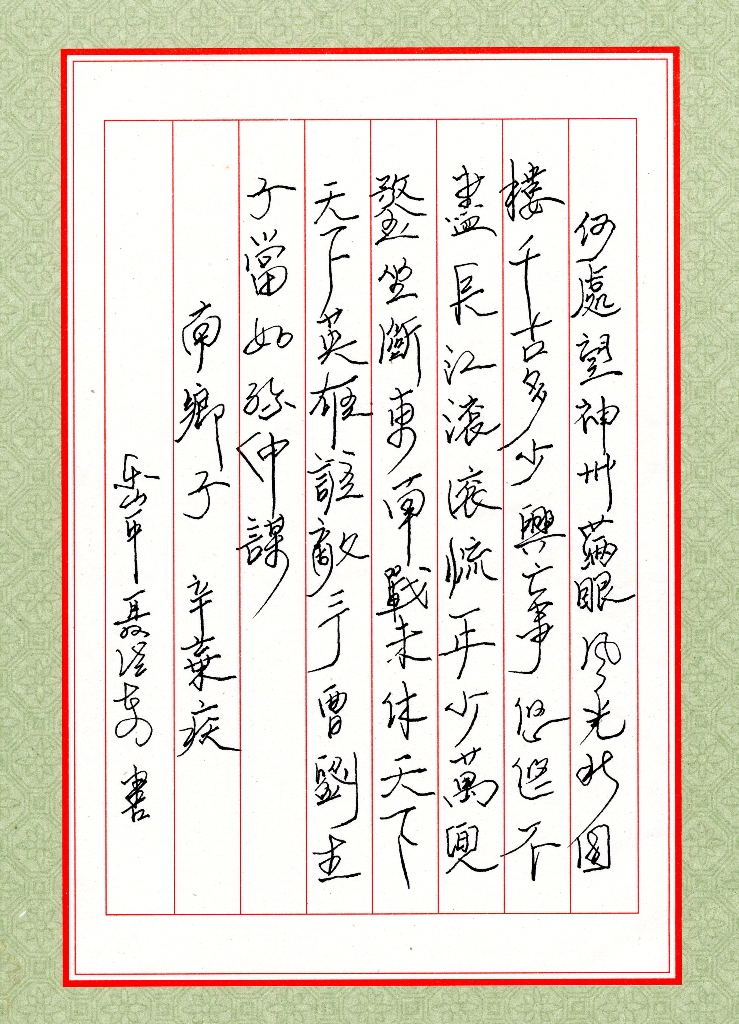 何處望神州滿眼風光北固
樓千古多少興亡事悠悠不
盡長江滾滾流年少萬兜
鍪坐斷東南戰未休天下
天下英雄誰敵手曹劉生
子當如孫仲謀
南鄉子 辛棄疾
書